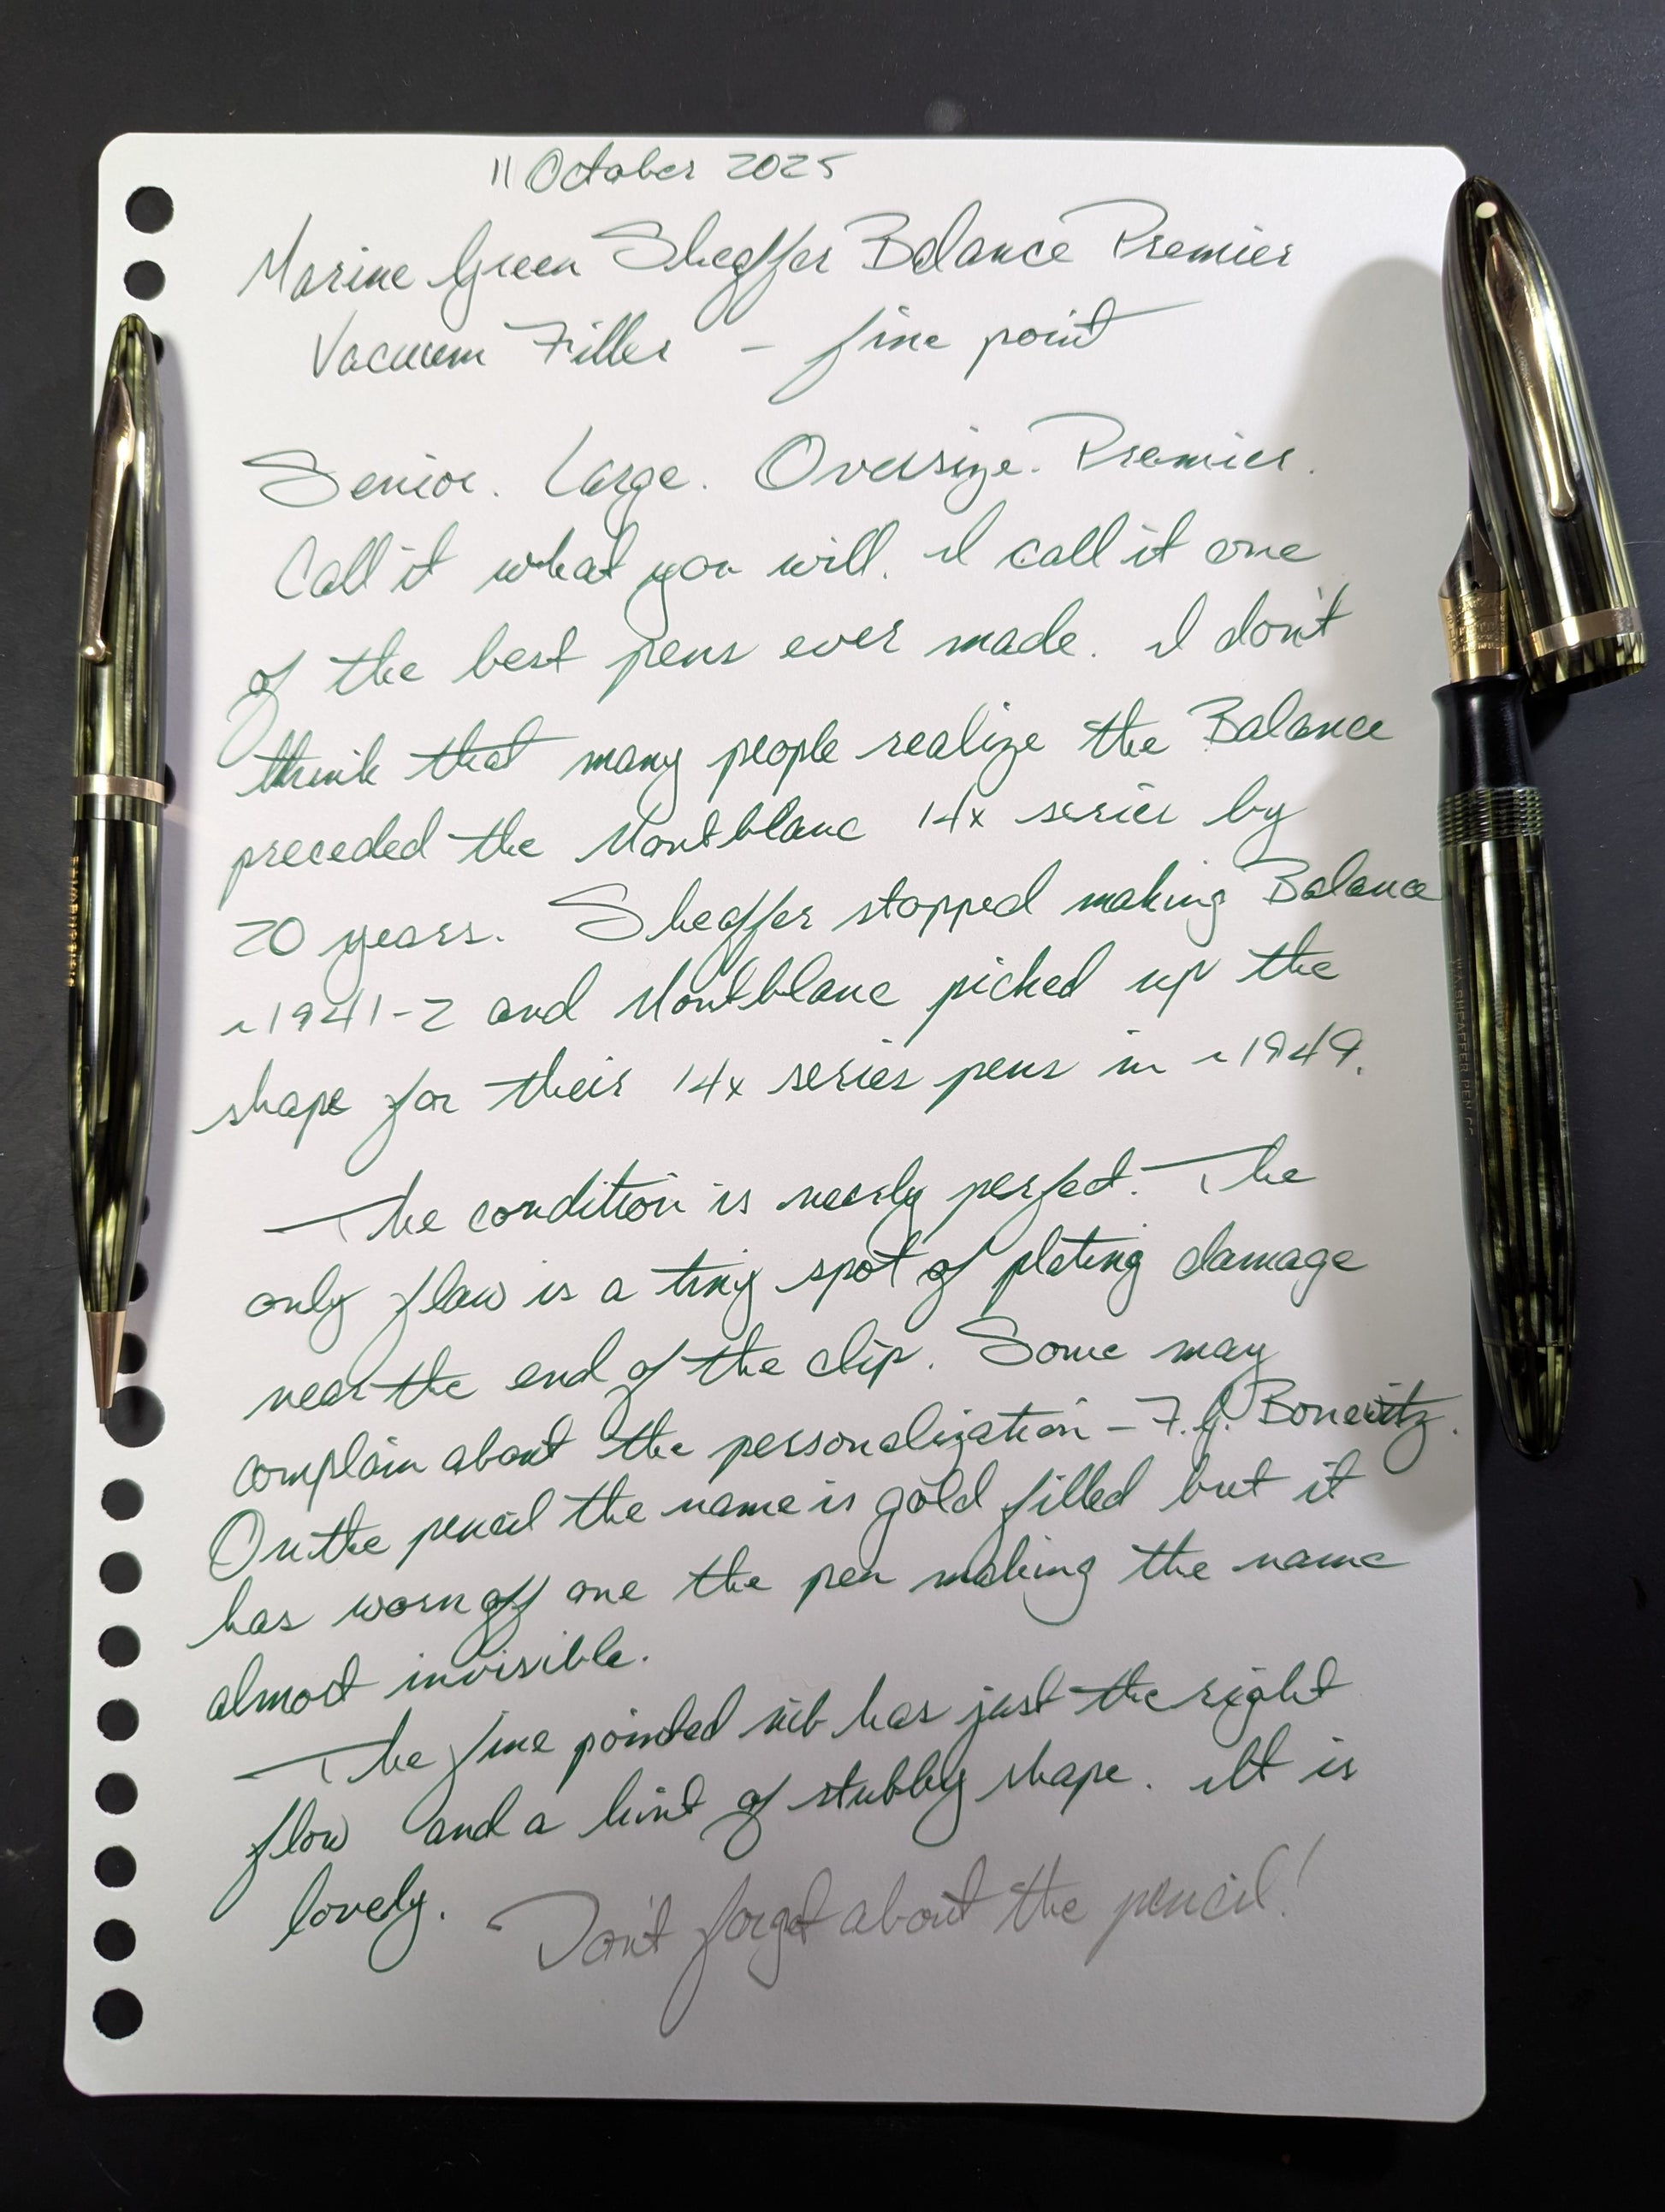 11 October 2025
Marine Green Sheaffer Balance Premier
Vacuum Filler – fine point
Senior. Large. Oversize. Premier.
Call it what you will. I call it one
of the best pens ever made. I don't
think that many people realize the Balance
preceded the Montblanc 14x series by
20 years. Sheaffer stopped making Balance
~1941-2 and Montblanc picked up the
shape for their 14x series pens in ~1949.
The condition is nearly perfect. The
only flaw is a tiny spot of plating damage
near the end of the clip. Some may
complain about the personalization – F.G. Bonewitz.
On the pencil the name is gold filled but it
has worn off one the pen making the name
almost invisible.
The fine pointed nib has just the right
flow and a hint of stubby shape. It is
lovely. Don't forget about the pencil!
W.A. SHEAFFER PEN CO.